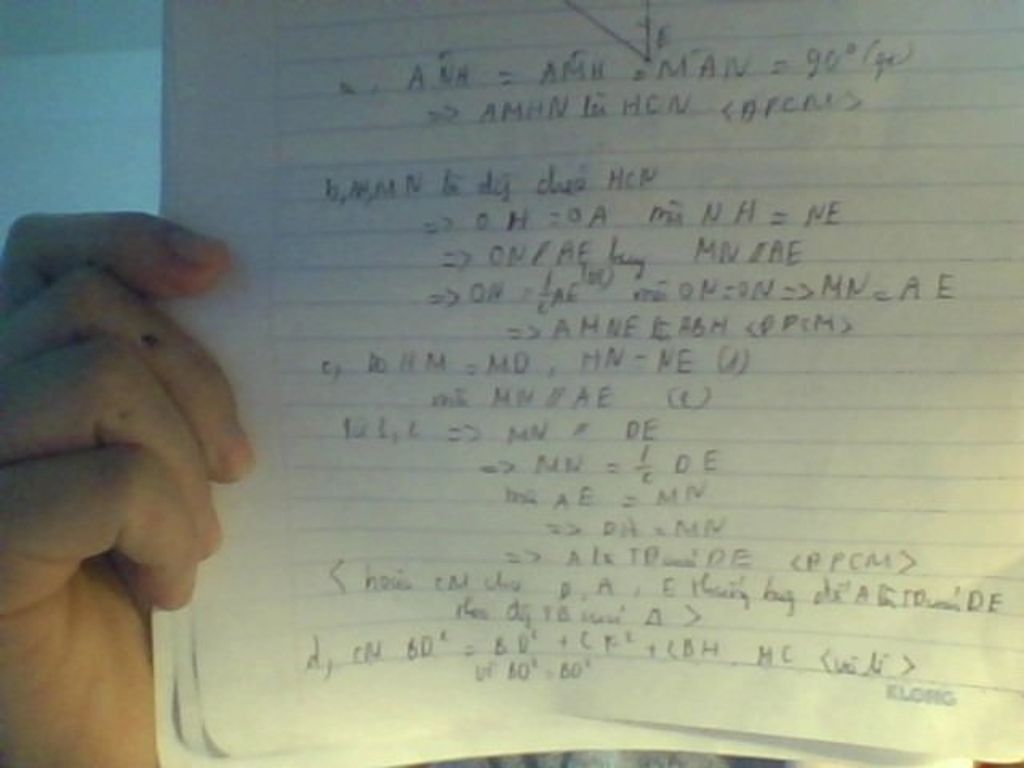 E
a, AN̂H = AM̂H = MÂN = 90° (gt)
=> AMHN là HCN <ĐPCM>
b, AH, MN là đg chéo HCN
=> OH = OA mà NH = NE
=> ON // AE hay MN // AE
=> ON = 1/2 AE mà OM = ON => MN = AE
=> AMNE là HBH <ĐPCM>
c, Do HM = MD, HN = NE (1)
mà MN // AE (2)
Từ 1, 2 => MN // DE
=> MN = 1/2 DE
mà AE = MN
=> DA = MN
=> A là TĐ của DE <ĐPCM>
< hoặc CM cho D, A, E thẳng hàng để A là TĐ của DE
theo đg TB của Δ >
d, CM BD² = BD² + CE² + 2BH. HC <vô lí>
vì BD² = BD²
KLONG